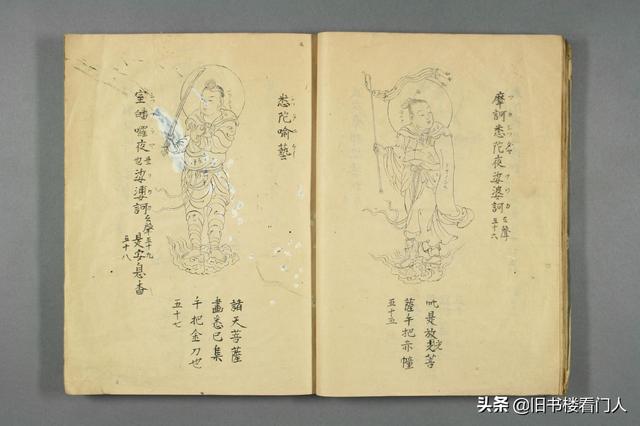 摩訶悉陀夜娑婆訶 去聲 五十六
此是放光菩
薩手把赤幢
五十五
悉陀喻藝
諸天菩薩
盡悉已集
手把金刀也
五十七
室皤囉夜 娑婆訶 去聲 五十九 是安息香
五十八
头条 @旧书楼看门人